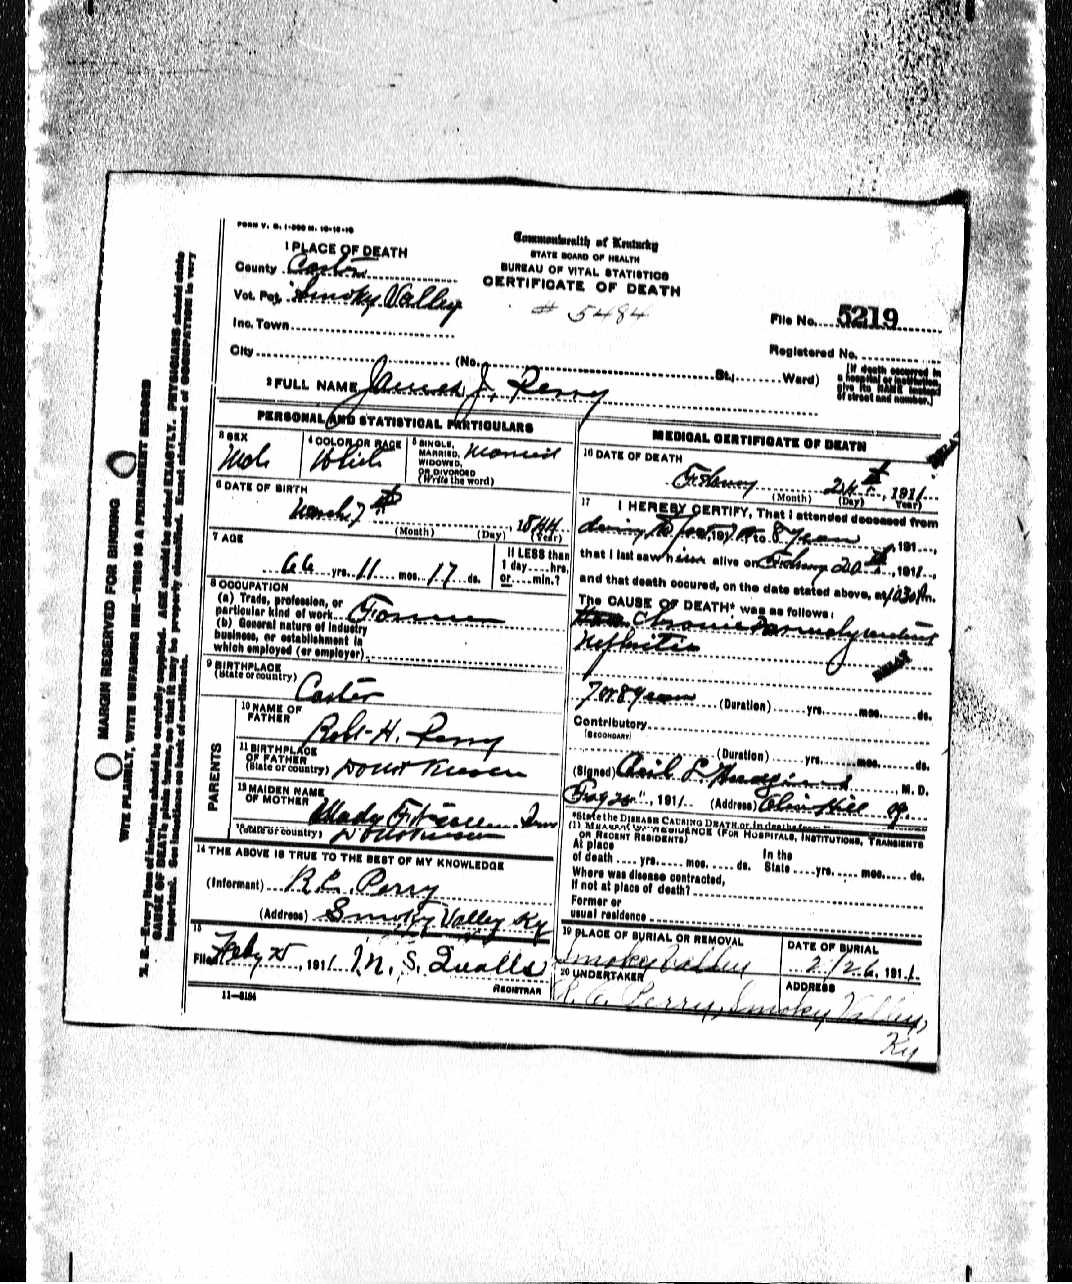 FORM V. S. 1-
Commonwealth of Kentucky
STATE BOARD OF HEALTH
BUREAU OF VITAL STATISTICS
CERTIFICATE OF DEATH
# 5484
1 PLACE OF DEATH
County Carter
Vot. Pct. Smoky Valley
Inc. Town
City (No. St.; Ward)
File No. 5219
Registered No.
[If death occurred in a hospital or institution, give its NAME instead of street and number.]
2 FULL NAME James J. Perry
PERSONAL AND STATISTICAL PARTICULARS
3 SEX Male
4 COLOR OR RACE White
5 SINGLE, MARRIED, WIDOWED, OR DIVORCED (Write the word) Married
6 DATE OF BIRTH
March 7th, 1844
(Month) (Day) (Year)
7 AGE
66 yrs. 11 mos. 17 ds.
If LESS than 1 day....hrs. or....min.?
8 OCCUPATION
(a) Trade, profession, or particular kind of work Farmer
(b) General nature of industry business, or establishment in which employed (or employer)
9 BIRTHPLACE (State or country) Carter
PARENTS
10 NAME OF FATHER Robt H. Perry
11 BIRTHPLACE OF FATHER (State or country) Dont Know
12 MAIDEN NAME OF MOTHER
(State or country) Dont Know
14 THE ABOVE IS TRUE TO THE BEST OF MY KNOWLEDGE
(Informant) Perry
(Address) Smoky Valley Ky
15
Filed Feby 25, 1911 M. S. Qualls
REGISTRAR
11-5184
MEDICAL CERTIFICATE OF DEATH
16 DATE OF DEATH
February 24th, 1911
(Month) (Day) (Year)
17 I HEREBY CERTIFY, That I attended deceased from
during the past 7 or 8 years, 191...,
that I last saw him alive on 20th, 1911,
and that death occured, on the date stated above, at 1030 P m.
The CAUSE OF DEATH* was as follows:
Chronic
Nephritis
7 or 8 years (Duration) yrs. mos. ds.
Contributory
(SECONDARY)
(Duration) yrs. mos. ds.
(Signed) Hudgins, M. D.
, 1911 (Address) Olive Hill
*State the DISEASE CAUSING DEATH
RESIDENCE (FOR HOSPITALS, INSTITUTIONS, TRANSIENTS OR RECENT RESIDENTS)
At place of death .... yrs. .... mos. .... ds. In the State .... yrs. .... mos. .... ds.
Where was disease contracted,
If not at place of death?
Former or
usual residence
19 PLACE OF BURIAL OR REMOVAL Smoky Valley
DATE OF BURIAL 2/26, 1911
20 UNDERTAKER Perry, Smoky Valley, Ky
ADDRESS
MARGIN RESERVED FOR BINDING
WRITE PLAINLY, WITH UNFADING INK—THIS IS A PERMANENT RECORD
N. B.—Every item of information should be carefully supplied. AGE should be stated EXACTLY. PHYSICIANS should state
CAUSE OF DEATH in plain terms, so that it may be properly classified. Exact statement of OCCUPATION is very
important. See instructions on back of certificate.